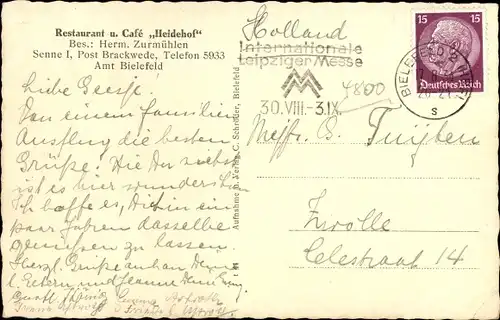 Restaurant u. Café „Heidehof“
Bes.: Herm. Zurmühlen
Senne I, Post Brackwede, Telefon 5933
Amt Bielefeld
Liebe Geesje.
Von einem Familien
Ausflug die besten
Grüße. Wie Du siehst
ist es hier wunderschön
Ich hoffe es, Dich in ein
paar Jahren dasselbe
geniessen zu lassen.
Herzl. Grüße auch an Deine
l. Eltern und
Aufnahme u. Verlag C. Schröder, Bielefeld
Holland
Internationale
Leipziger Messe
MM
30.VIII.-3.IX.
4800
BIELEFELD 2
s
15 15
Deutsches Reich
Mejfr. G. Tuijten
Zwolle
Celestraat 14